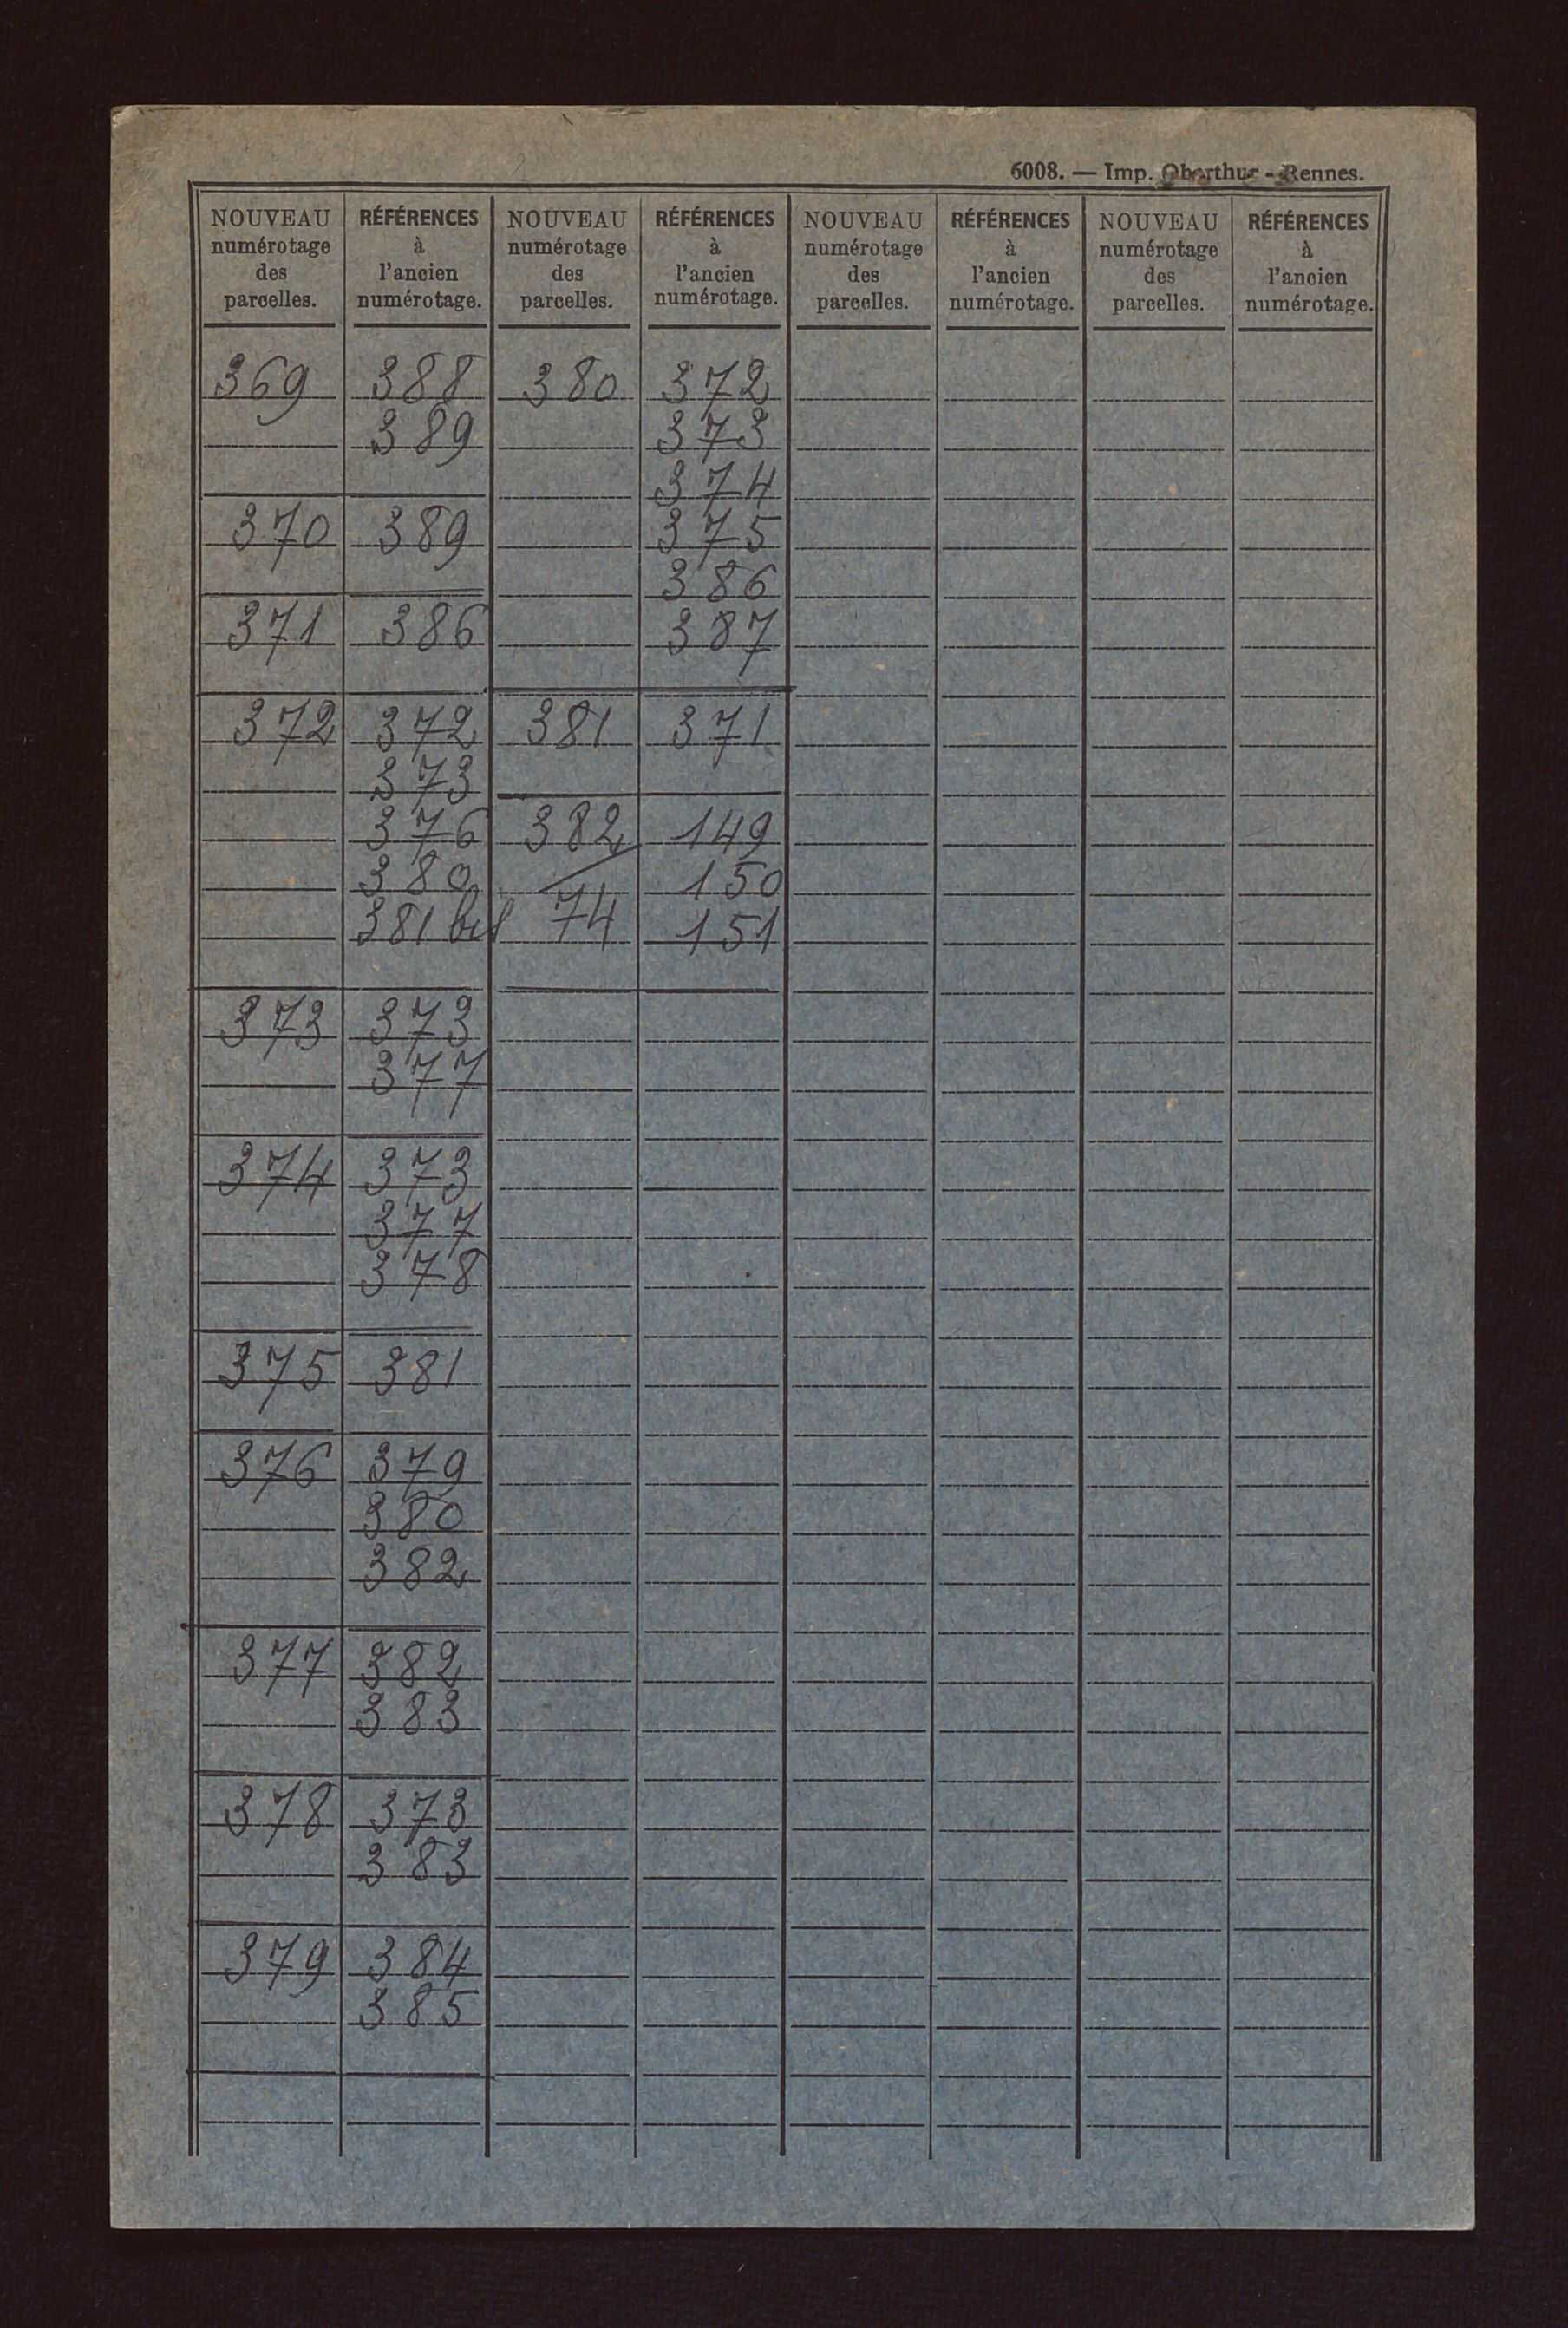 6008. — Imp. Oberthur - Rennes.
NOUVEAU numérotage des parcelles. RÉFÉRENCES à l'ancien numérotage. NOUVEAU numérotage des parcelles. RÉFÉRENCES à l'ancien numérotage. NOUVEAU numérotage des parcelles. RÉFÉRENCES à l'ancien numérotage. NOUVEAU numérotage des parcelles. RÉFÉRENCES à l'ancien numérotage.
369 388 380 372
389 373
374
370 389 375
386
371 386 387
372 372 381 371
373
376 382 149
380 / 150
381 bis 74 151
373 373
377
374 373
377
378
375 381
376 379
380
382
377 382
383
378 373
383
379 384
385